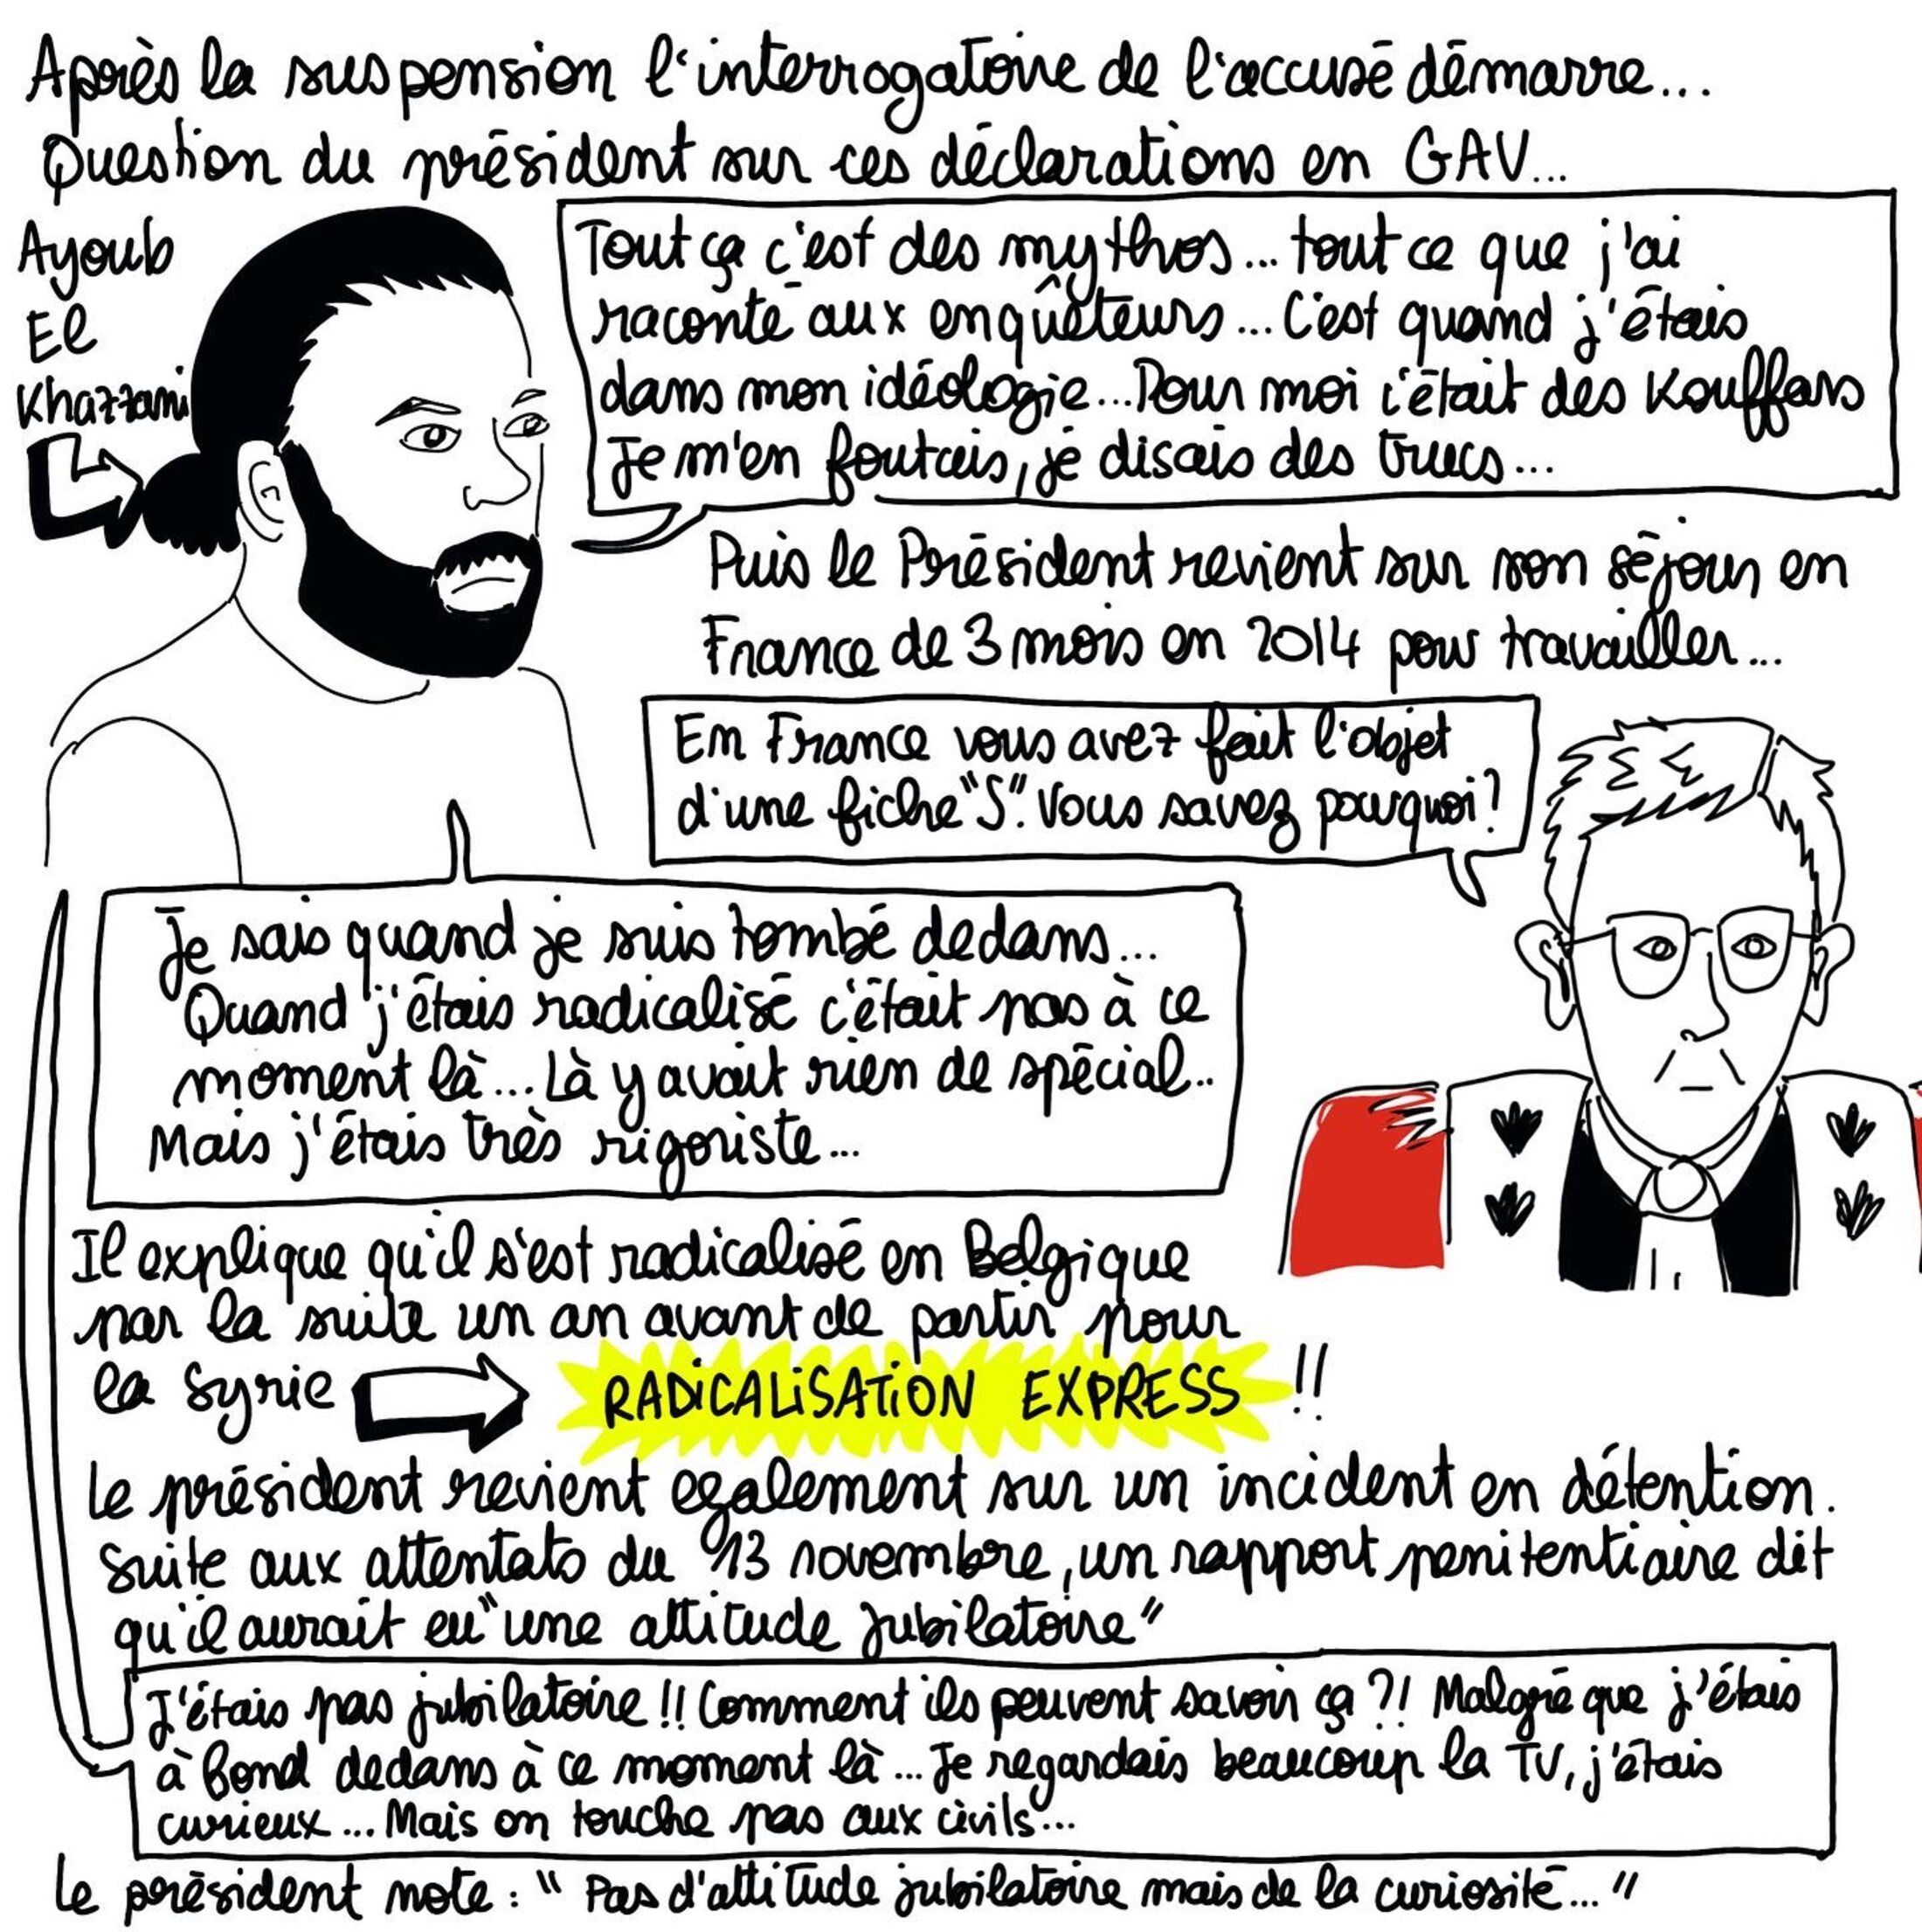 Après la suspension l'interrogatoire de l'accusé démarre...
Question du président sur ces déclarations en GAV...
Ayoub
El
Khazzani
Tout ça c'est des mythos... tout ce que j'ai
raconté aux enquêteurs... C'est quand j'étais
dans mon idéologie... Pour moi c'était des Kouffars
Je m'en foutais, je disais des trucs...
Puis le Président revient sur son séjour en
France de 3 mois en 2014 pour travailler...
En France vous avez fait l'objet
d'une fiche "S". Vous savez pourquoi?
Je sais quand je suis tombé dedans...
Quand j'étais radicalisé c'était pas à ce
moment là... Là y avait rien de spécial...
Mais j'étais très rigoriste...
Il explique qu'il s'est radicalisé en Belgique
par la suite un an avant de partir pour
la Syrie
RADICALISATION EXPRESS !!
Le président revient egalement sur un incident en détention.
Suite aux attentats du 13 novembre, un rapport penitentiaire dit
qu'il aurait eu "une attitude jubilatoire"
J'étais pas jubilatoire !! Comment ils peuvent savoir ça ?! Malgré que j'étais
à fond dedans à ce moment là... Je regardais beaucoup la TV, j'étais
curieux... Mais on touche pas aux civils...
Le président note : "Pas d'attitude jubilatoire mais de la curiosité..."